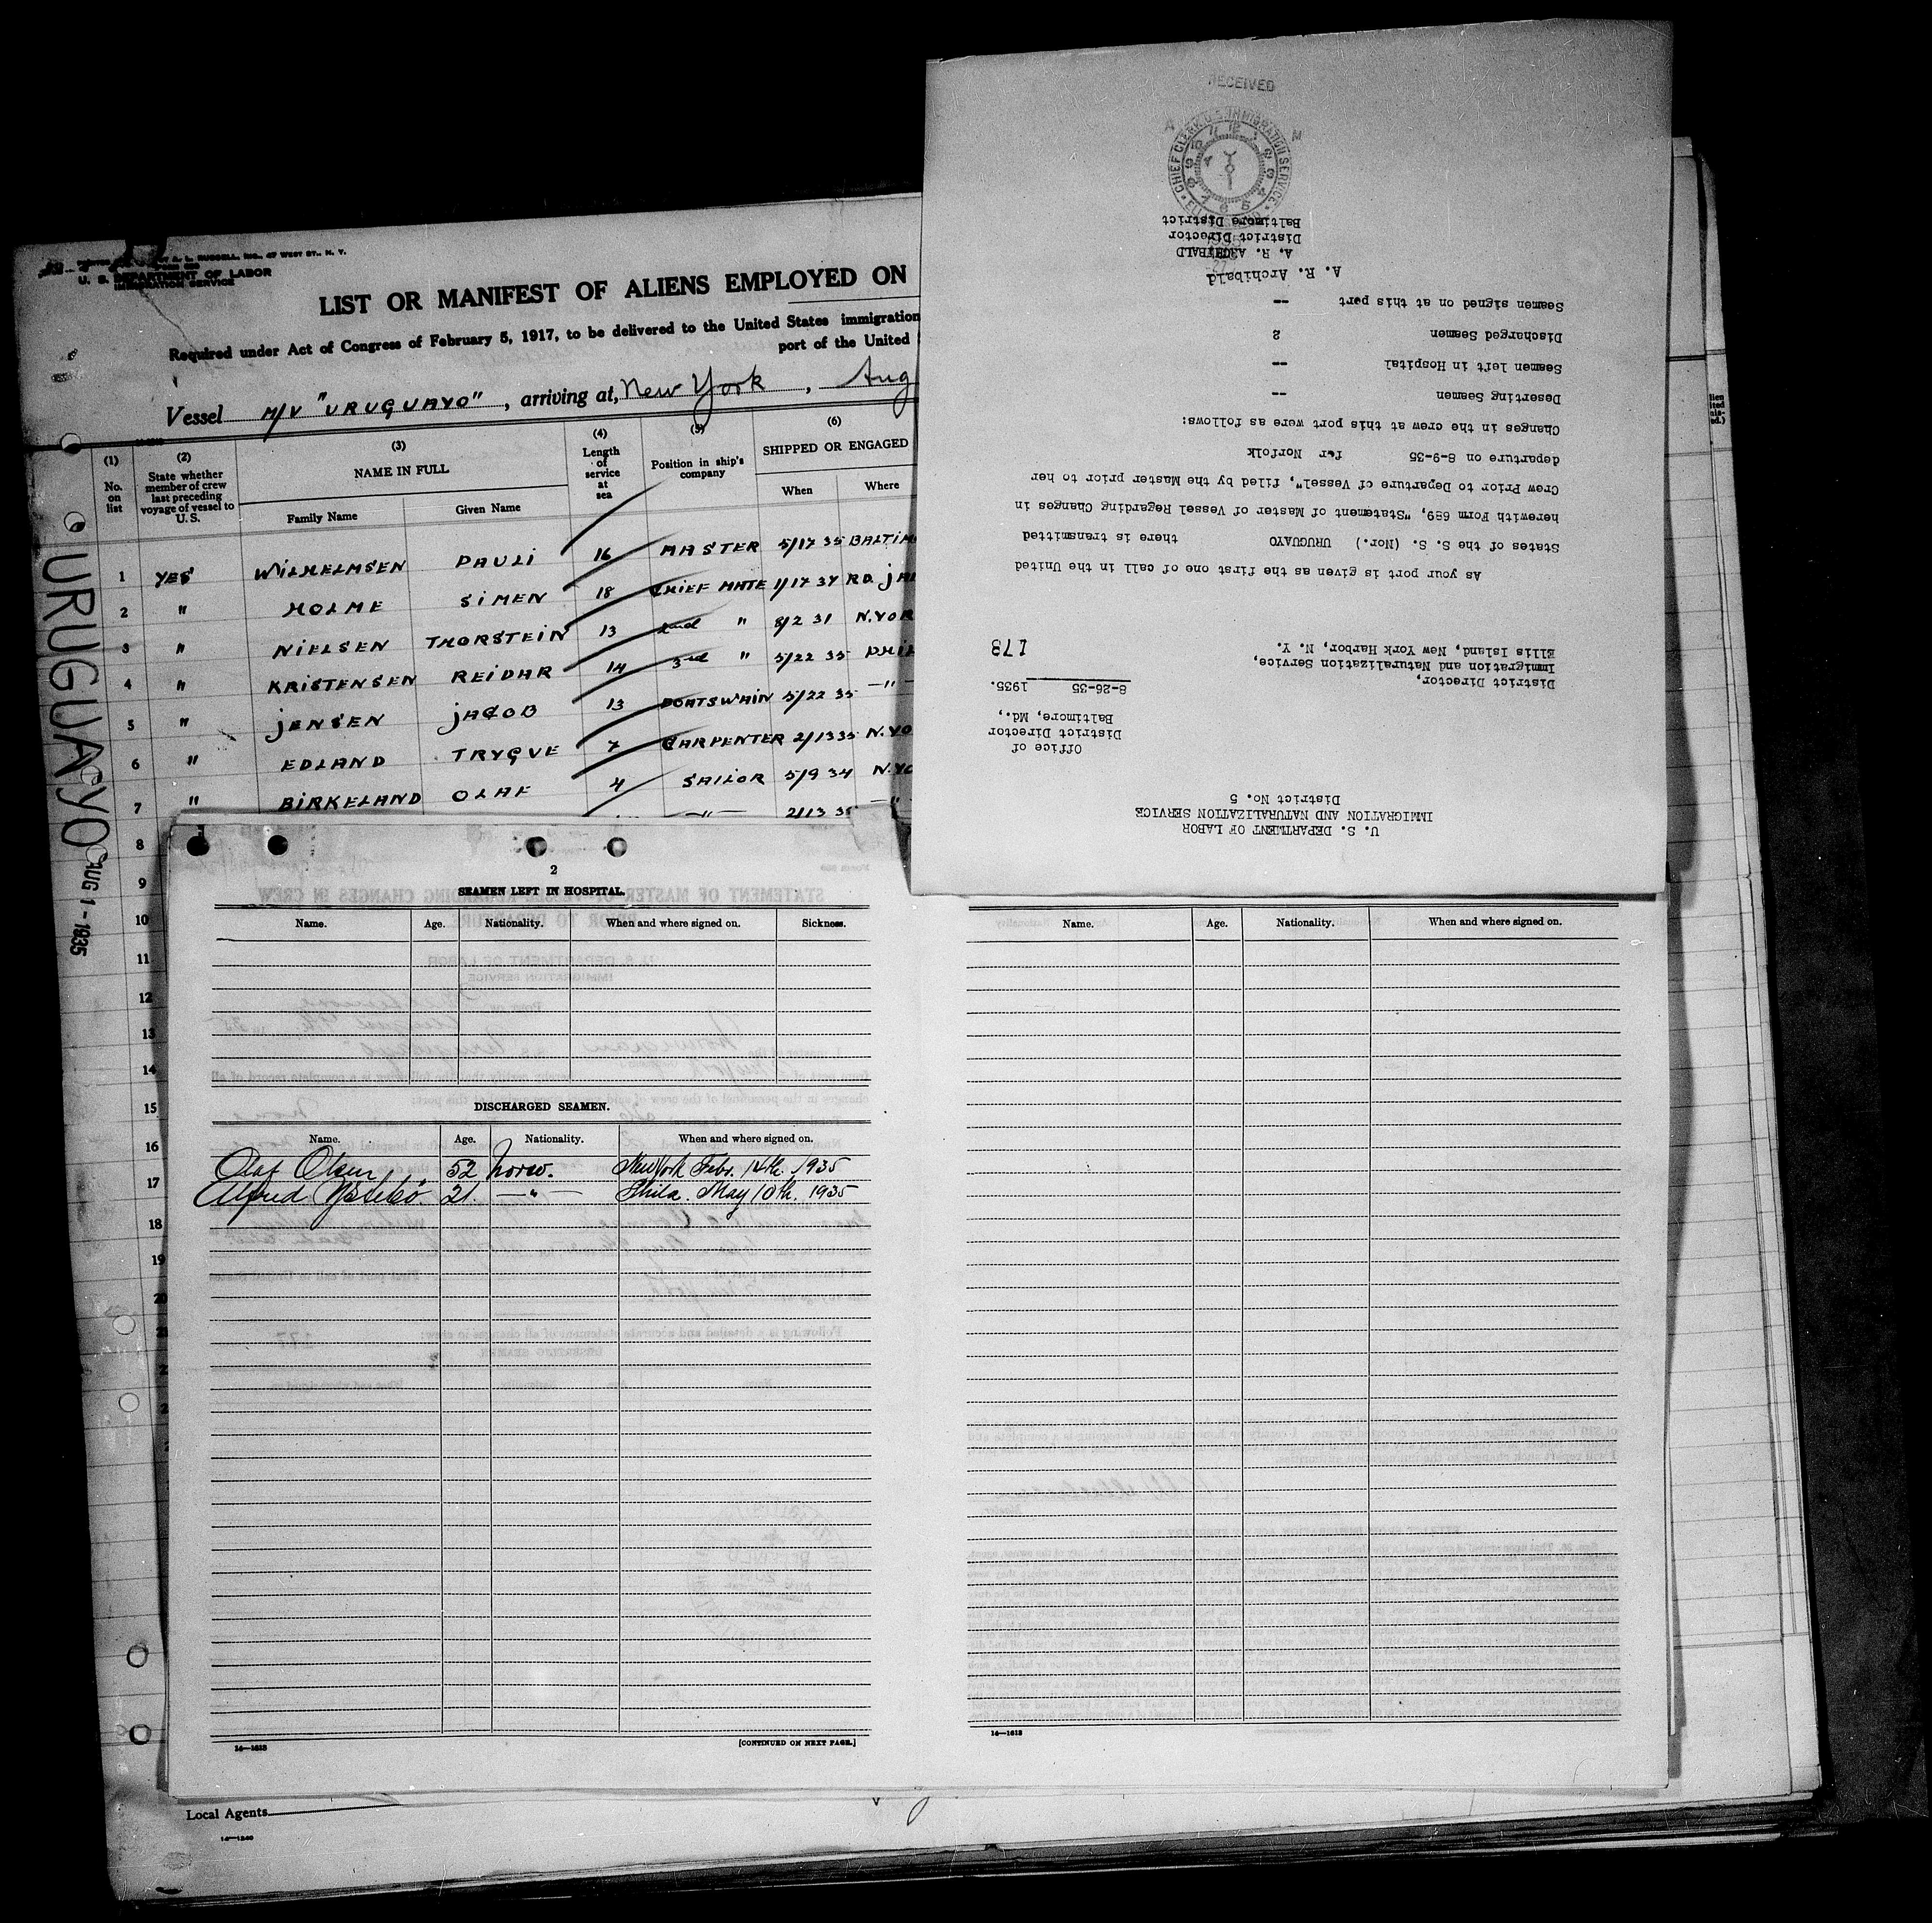 PRINTED BY A. L. RUSSELL, INC., 47 WEST ST., N. Y.
U. S. DEPARTMENT OF LABOR
IMMIGRATION SERVICE
LIST OR MANIFEST OF ALIENS EMPLOYED ON
Required under Act of Congress of February 5, 1917, to be delivered to the United States immigration
port of the United
Vessel M/V "URUGUAYO", arriving at, New York, Aug
(1) (2) (3) (4) (5) (6)
No. on list
State whether member of crew last preceding voyage of vessel to U. S.
NAME IN FULL
Family Name Given Name
Length of service at sea
Position in ship's company
SHIPPED OR ENGAGED
When Where
1 YES WILHELMSEN PAULI 16 MASTER 5/17 35 BALTIM
2 " HOLME SIMEN 18 CHIEF MATE 1/17 34 RD. JAN
3 " NIELSEN THORSTEIN 13 2nd " 8/2 31 N.YOR
4 " KRISTENSEN REIDAR 14 3rd " 5/22 35 PHIL
5 " JENSEN JACOB 13 BOATSWAIN 5/22 35 —"—
6 " EDLAND TRYGVE 7 CARPENTER 2/13 35 N.YO
7 " BIRKELAND OLAF 4 SAILOR 5/9 34 N.YO
8 —"— 2/13 35 —"—
9
10
11
12
13
14
15
16
17
18
19
20
21
URUGUAYO
AUG 1 - 1935
2
SEAMEN LEFT IN HOSPITAL.
Name. Age. Nationality. When and where signed on. Sickness.
DISCHARGED SEAMEN.
Name. Age. Nationality. When and where signed on.
Olaf Olsen 52 Norw. New York Febr. 14th. 1935
Alfred 21. —"— Phila. May 10th. 1935
14—1613
[CONTINUED ON NEXT PAGE.]
Name. Age. Nationality. When and where signed on.
14—1613
Local Agents
14—1240
U. S. DEPARTMENT OF LABOR
IMMIGRATION AND NATURALIZATION SERVICE
District No. 5
Office of
District Director
Baltimore, Md.,
8-26-35 1935.
District Director,
Immigration and Naturalization Service,
Ellis Island, New York Harbor, N. Y.
173
As your port is given as the first one of call in the United
States of the S. S. (Nor.) URUGUAYO there is transmitted
herewith Form 689, "Statement of Master of Vessel Regarding Changes in
Crew Prior to Departure of Vessel", filed by the Master prior to her
departure on 8-9-35 for Norfolk
Changes in the crew at this port were as follows:
Deserting Seamen --
Seamen left in Hospital --
Discharged Seamen 2
Seamen signed on at this port --
A. R. Archibald
A. R. ARCHIBALD
District Director
Baltimore District
RECEIVED
A M
CHIEF CLERK U.S. IMMIGRATION SERVICE